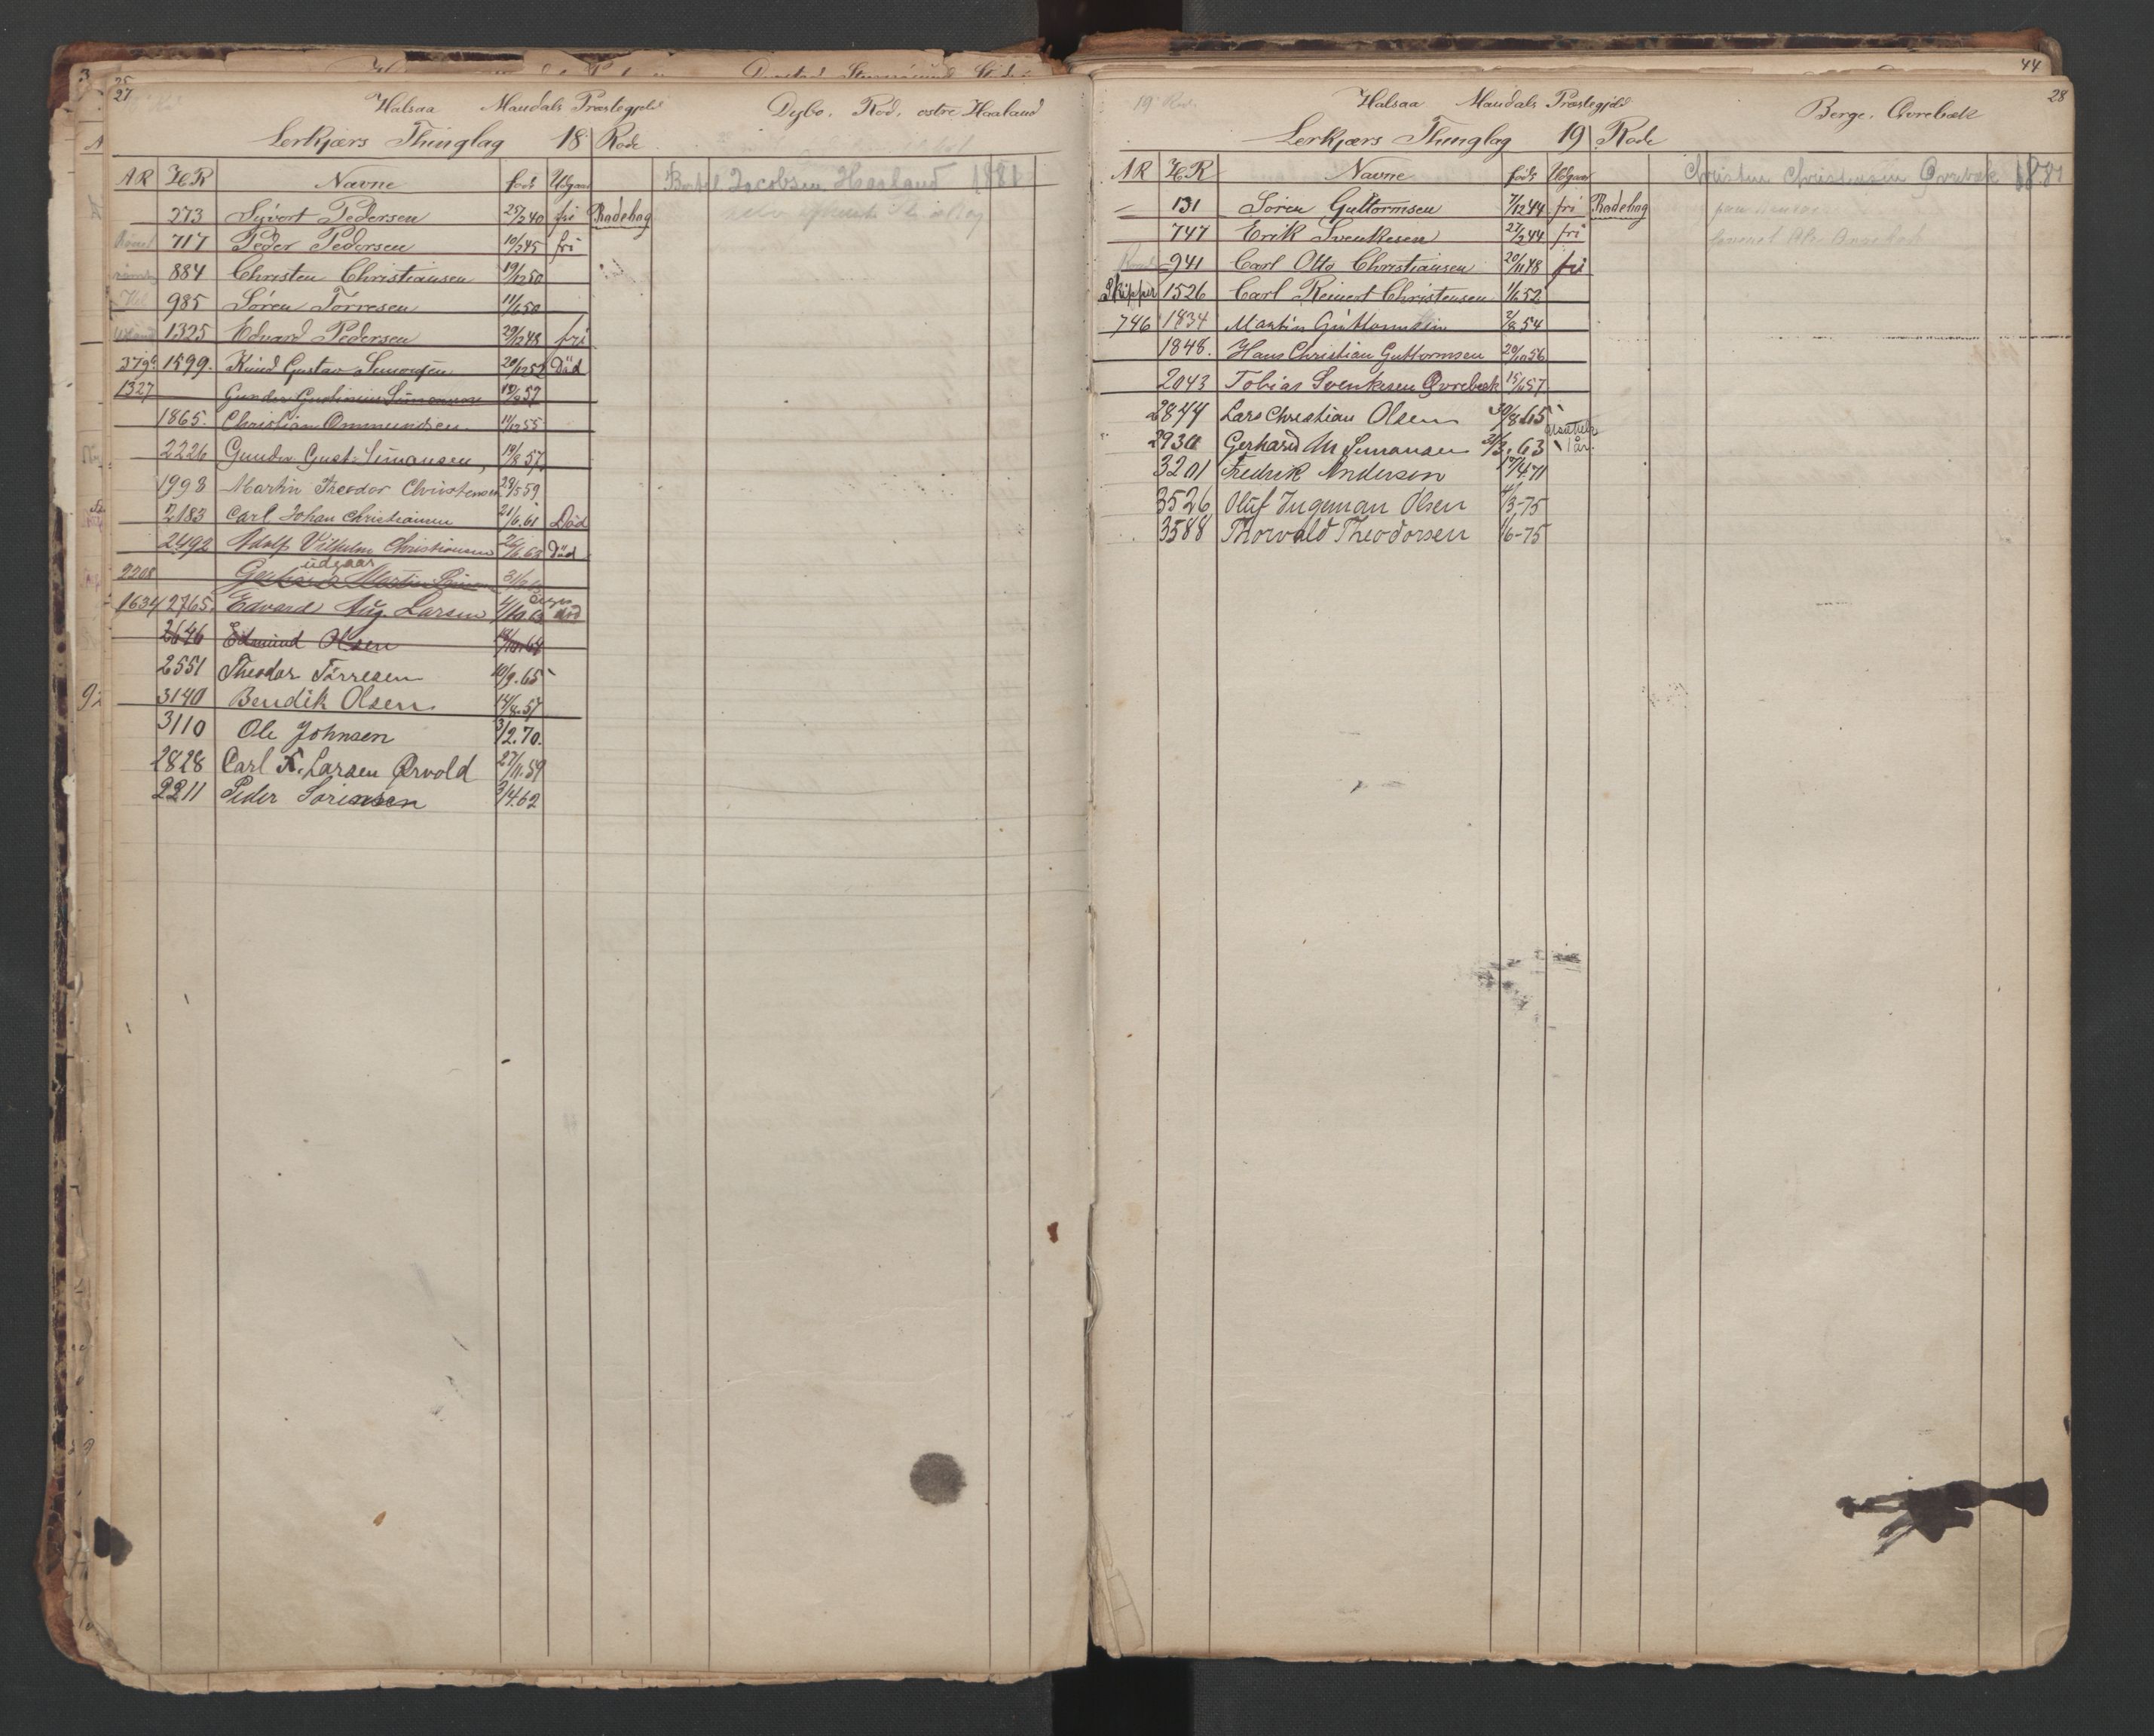 25
27
Halsaa Mandals Præstegjeld Dybo, Rød, østre Haaland
Lerkjærs Thinglag 18 Rode
AR HR Navne født Udgaar Bertel Jacobsen Haaland 1881
273 Syvert Pedersen 25/2 40 fri Rodebog
717 Peder Pedersen 10/2 45 fri
884 Christen Christiansen 19/12 50
985 Sören Torresen 11/6 50
1325 Edvard Pedersen 29/12 48 fri
379 1599. Knud Gustav Simonsen 20/12 52 Död
1327 Gunder Gustinius Simonsen 19/8 57
1865. Christian Ommundsen 14/12 55
2226 Gunder Gust. Simonsen, 19/8 57
1998 Martin Theodor Christensen 29/5 59
2183 Carl Johan Christiansen 21/6.61 Död
2492 Adolf Vilhelm Christiansen 26/6 63 Död
udgaar
2208 Gerhard Martin
1634 2765. Edvard Aug. Larsen död
2646 Edmund Olsen 12/10.64
2551 Theodor Törresen 10/9.65
3140 Bendik Olsen 14/8.57
3110 Ole Johnsen 3/2.70.
2828 Carl A. Larsen Ørvold 27/11.59
2211 Peder Sörensen 3/4.62
44
28
19 Rode
Halsaa Mandals Præstegjeld Berge, Øvrebæk
Lerkjærs Thinglag 19 Rode
AR HR Navne født Udgaar Christen Christensen Øvrebæk 1881
131 Sören Guttormsen 7/12 44 fri Rodebog
747 Erik Svenkesen 27/2 44 fri
941 Carl Otto Christiansen 20/11 48 fri
Skipper 1526 Carl Reinert Christensen 1/6 52
746 1834 Martin Guttormsen 2/8 54
1848. Hans Christian Guttormsen 20/10 56
2043 Tobias Svenkesen Øvrebæk 15/6 57
2844 Lars Christian Olsen 30/8 65
2930 Gerhard M Simonsen 31/3.63 1 år
3201 Fredrik Andersen 17/4.71
3526 Oluf Ingeman Olsen 4/3-75
3588 Thorvald Theodorsen 1/6-75